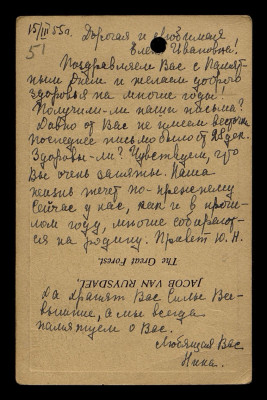 15/III 55г.
51
Дорогая и любимая
Елена Ивановна!
Поздравляем Вас с Памят-
ным Днем и желаем доброго
здоровья на многие годы!
Получили-ли наши письма?
Давно от Вас не имеем весточки
последнее письмо было от 28 дек.
Здоровы-ли? Чувствуем, что
Вы очень заняты. Наша
жизнь течет по-прежнему
Сейчас у нас, как и в прош-
лом году, многие собирают-
ся на родину. Привет Ю. Н.
The Great Forest.
JACOB VAN RUYSDAEL
Да хранят Вас Силы Все-
вышние, а мы всегда
памятуем о Вас.
Любящая Вас
Нина.